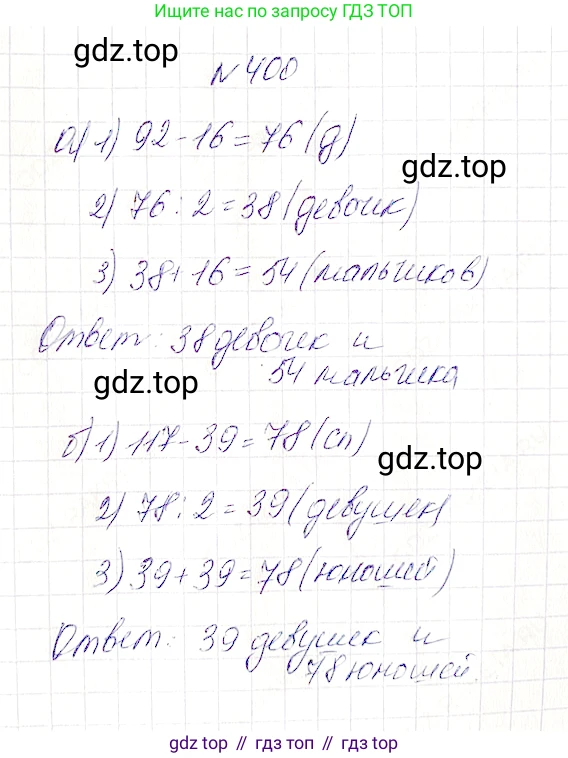 Ищите по запросу ГДЗ ТОП
gdz.top
№ 400
а) 1) 92 - 16 = 76 (д)
gdz.top
2) 76 : 2 = 38 (девочек)
3) 38 + 16 = 54 (мальчиков)
Ответ: 38 девочек и
54 мальчика
gdz.top
б) 1) 117 - 39 = 78 (сп)
gdz.top
2) 78 : 2 = 39 (девушек)
3) 39 + 39 = 78 (юношей)
Ответ: 39 девушек и
78 юношей.
gdz top // гдз топ // gdz.top